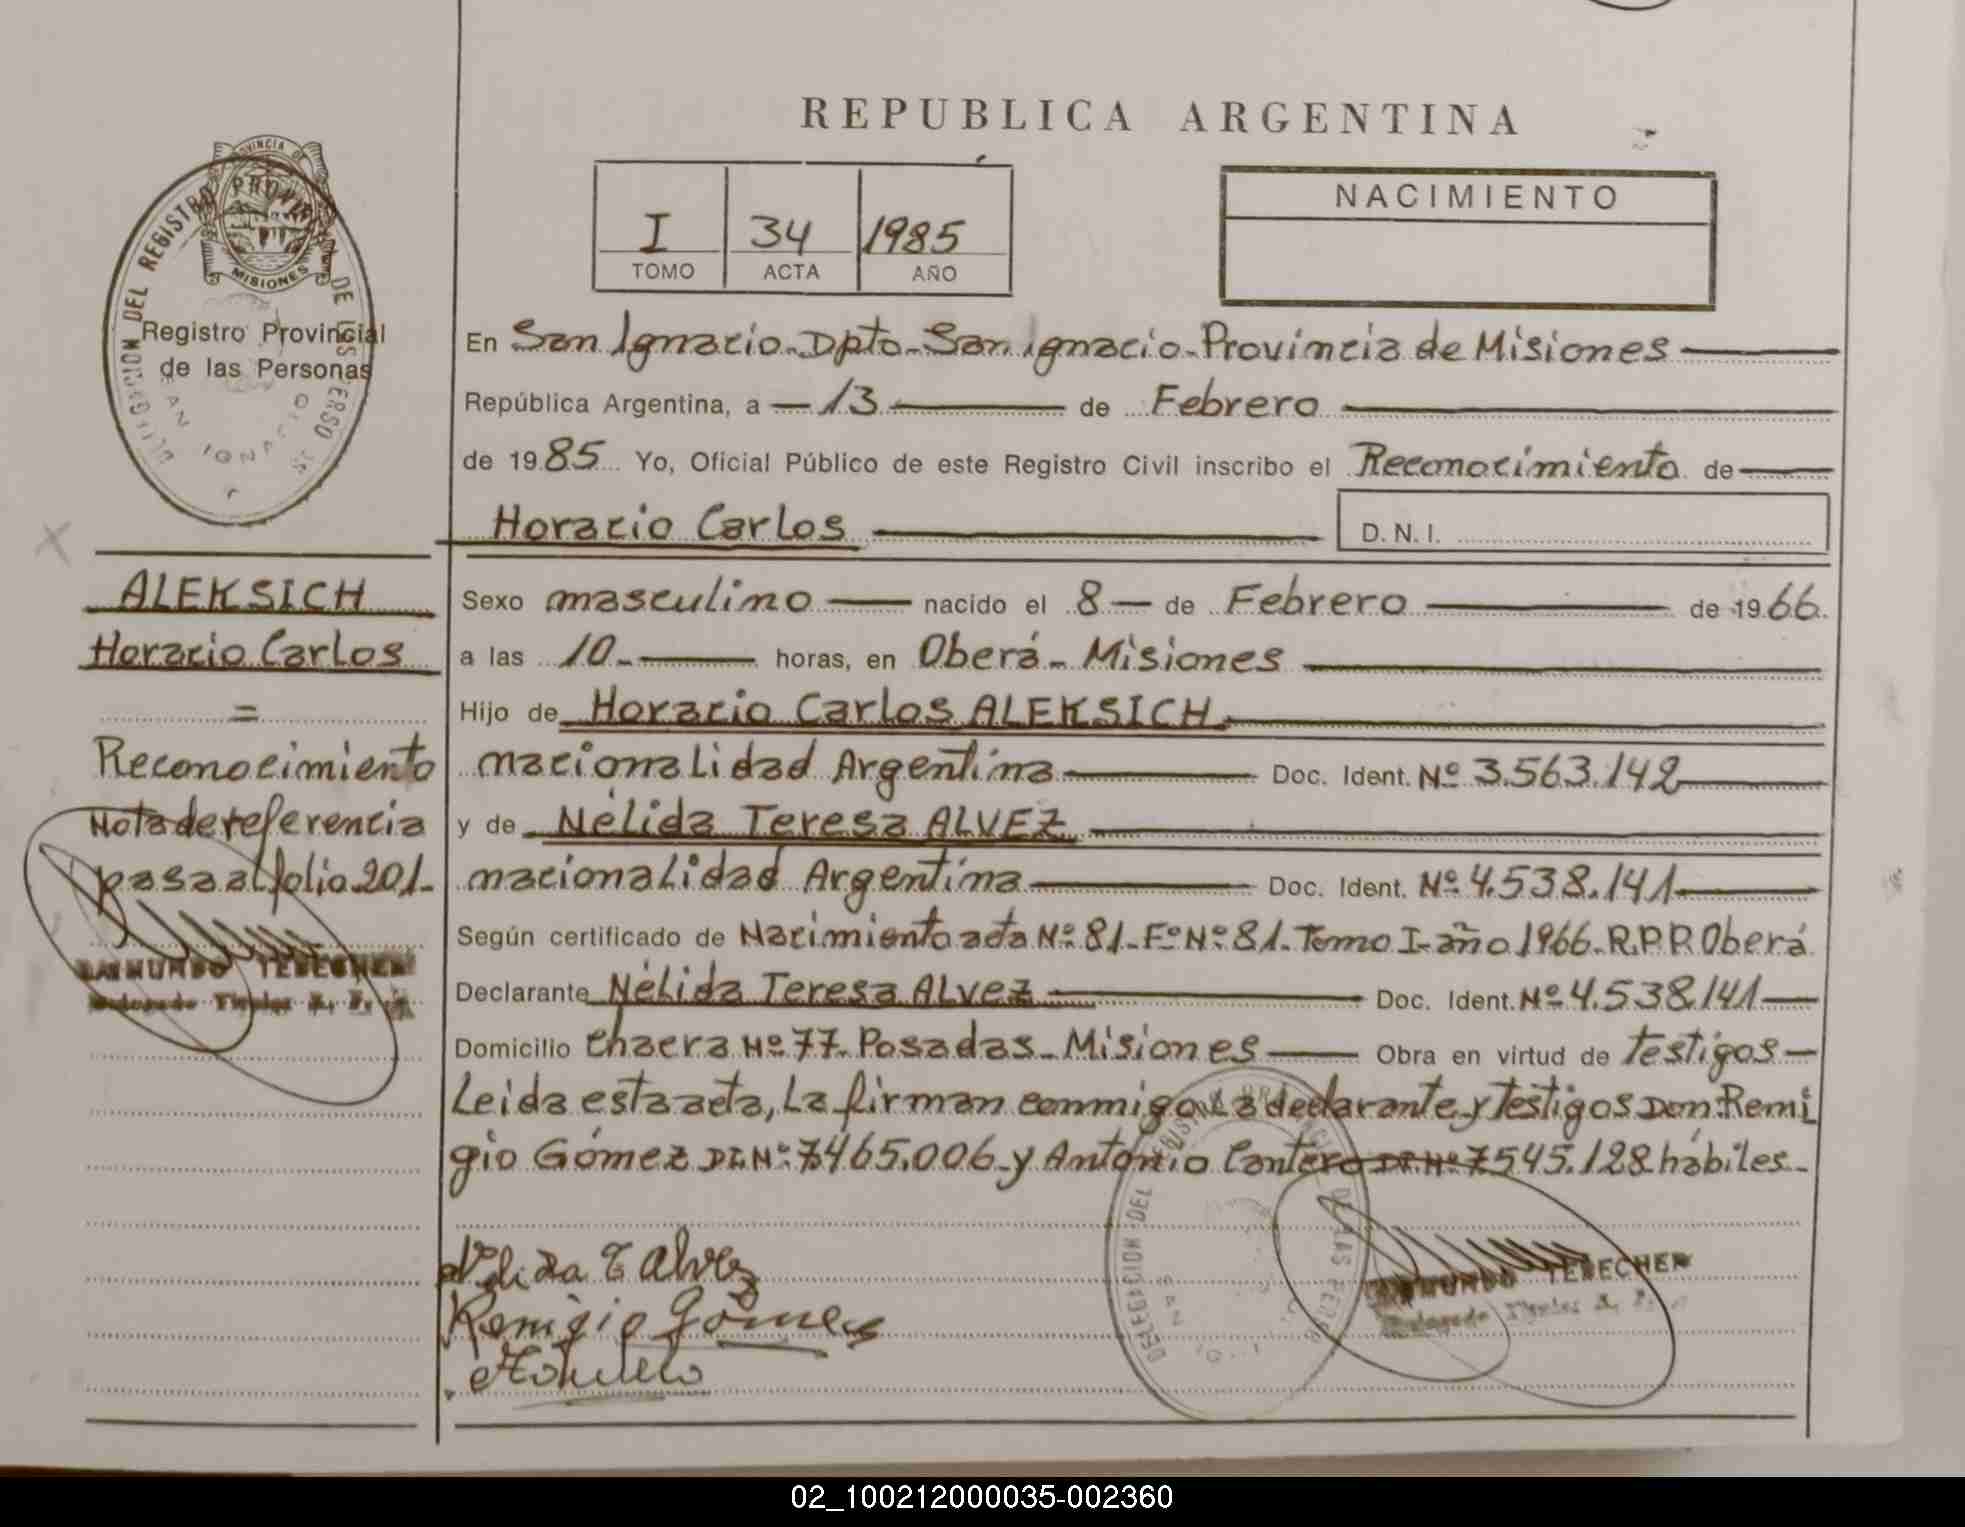 REPUBLICA ARGENTINA
PROVINCIA DE
MISIONES
Registro Provincial
de las Personas
I 34 1985
TOMO ACTA AÑO
NACIMIENTO
En San Ignacio-Dpto-San Ignacio-Provincia de Misiones
República Argentina, a 13 de Febrero
de 1985 Yo, Oficial Público de este Registro Civil inscribo el Reconocimiento de
Horacio Carlos
D.N.I.
ALEKSICH
Horacio Carlos
=
Reconocimiento
Nota de referencia
pasa al folio 201-
RAIMUNDO TEDECHER
Sexo masculino nacido el 8 de Febrero de 1966
a las 10- horas, en Oberá- Misiones
Hijo de Horacio Carlos ALEKSICH
nacionalidad Argentina Doc. Ident. Nº 3.563.142
y de Nélida Teresa ALVEZ
nacionalidad Argentina Doc. Ident. Nº 4.538.141
Según certificado de Nacimiento acta Nº 81-Fº Nº 81-Tomo I-año 1966-R.P.P. Oberá
Declarante Nélida Teresa Alvez Doc. Ident. Nº 4.538.141
Domicilio Chacra Nº 77- Posadas- Misiones Obra en virtud de testigos
Leida esta acta, la firman conmigo la declarante y testigos Don Remi
gio Gómez DI.Nº 7.465.006-y Antonio Cantero DI.Nº 7.545.128 hábiles-
Nelida T Alvez
Remigio Gómez
DELEGACION DEL REGISTRO PROVINCIAL DE LAS PERSONAS
SAN IGNACIO
RAIMUNDO TEDECHER
02_100212000035-002360